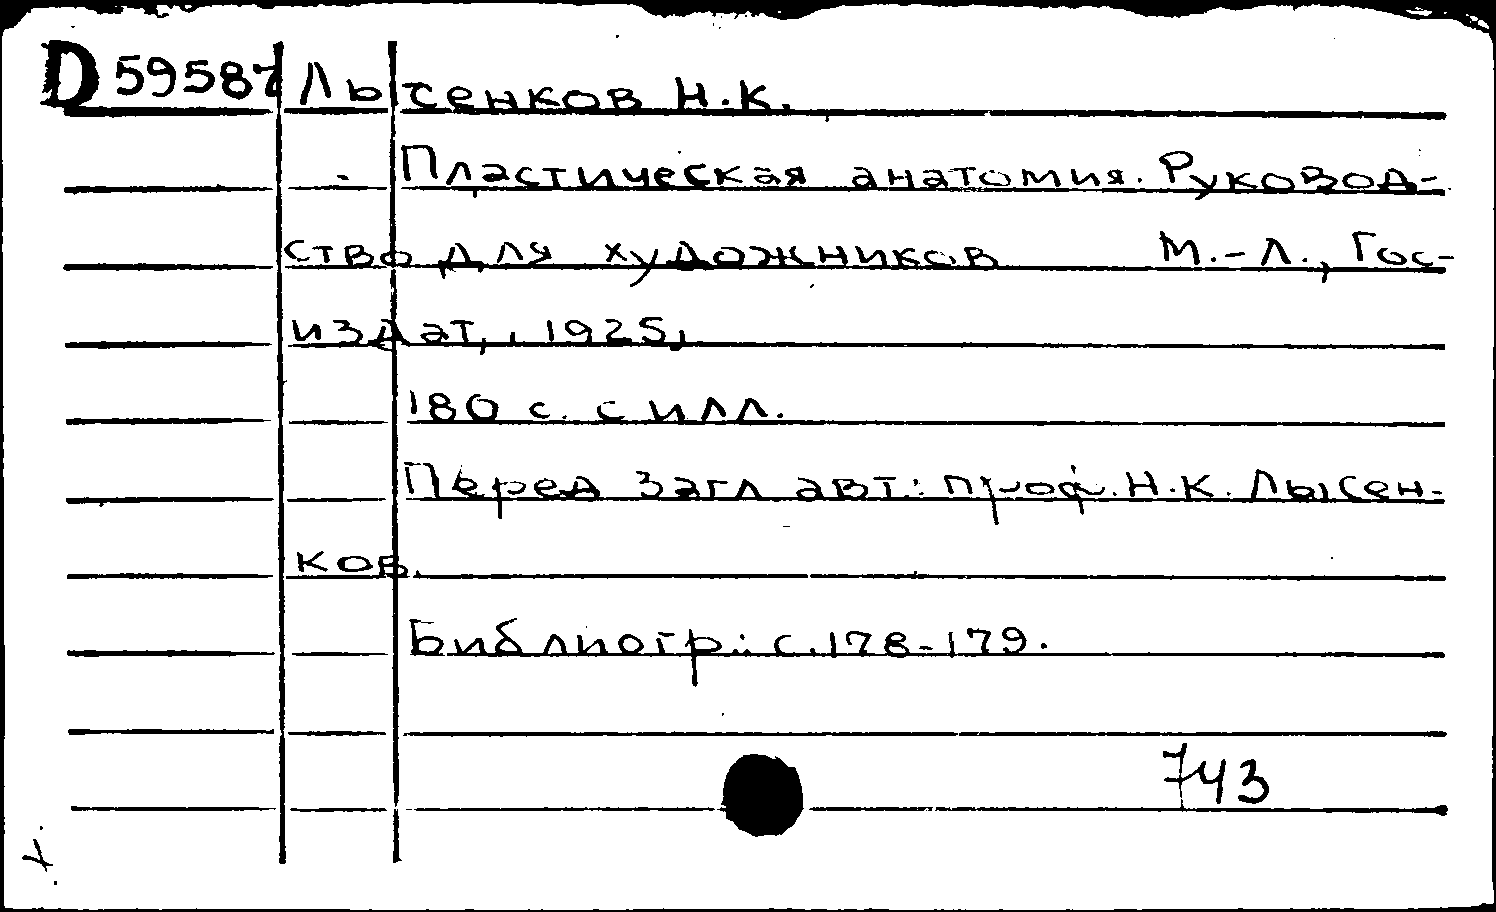 D 59587 Лысенков Н.К.
Пластическая анатомия. Руковод-
ство для художников М.-Л., Гос-
издат, 1925,
180 с. с илл.
Перед загл авт.: проф. Н.К. Лысен-
ков.
Библиогр.: с. 178-179.
743